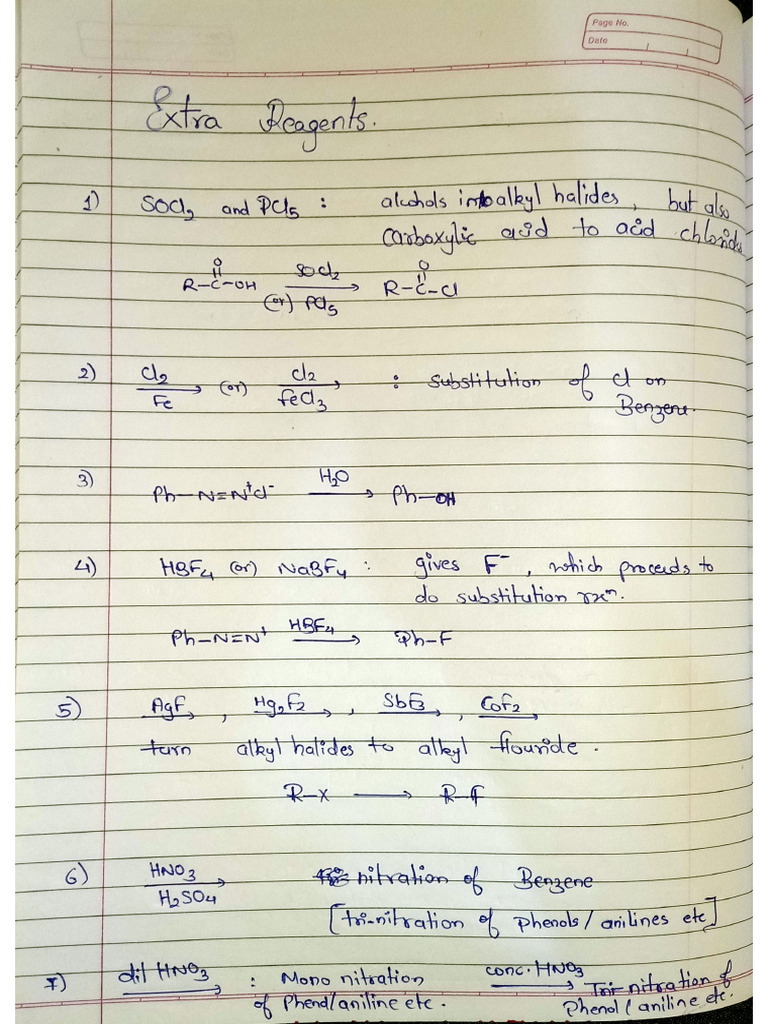 Page No.
Date
Extra Reagents.
1) SOCl2 and PCl5 : alcohols into alkyl halides, but also
carboxylic acid to acid chloride
R-C-OH SOCl2 (or) PCl5 R-C-Cl
O O
2) Cl2 Fe (or) Cl2 FeCl3 : substitution of Cl on
Benzene.
3) Ph-N=N+Cl- H2O Ph-OH
4) HBF4 (or) NaBF4 : gives F-, which proceeds to
do substitution rxn.
Ph-N=N+ HBF4 Ph-F
5) AgF, Hg2F2, SbF3, CoF2
turn alkyl halides to alkyl flouride.
R-X → R-F
6) HNO3 H2SO4 nitration of Benzene
[tri-nitration of phenols/anilines etc]
7) dil HNO3 : Mono nitration conc. HNO3 Tri-nitration of
of Phenol/aniline etc. Phenol/aniline etc.